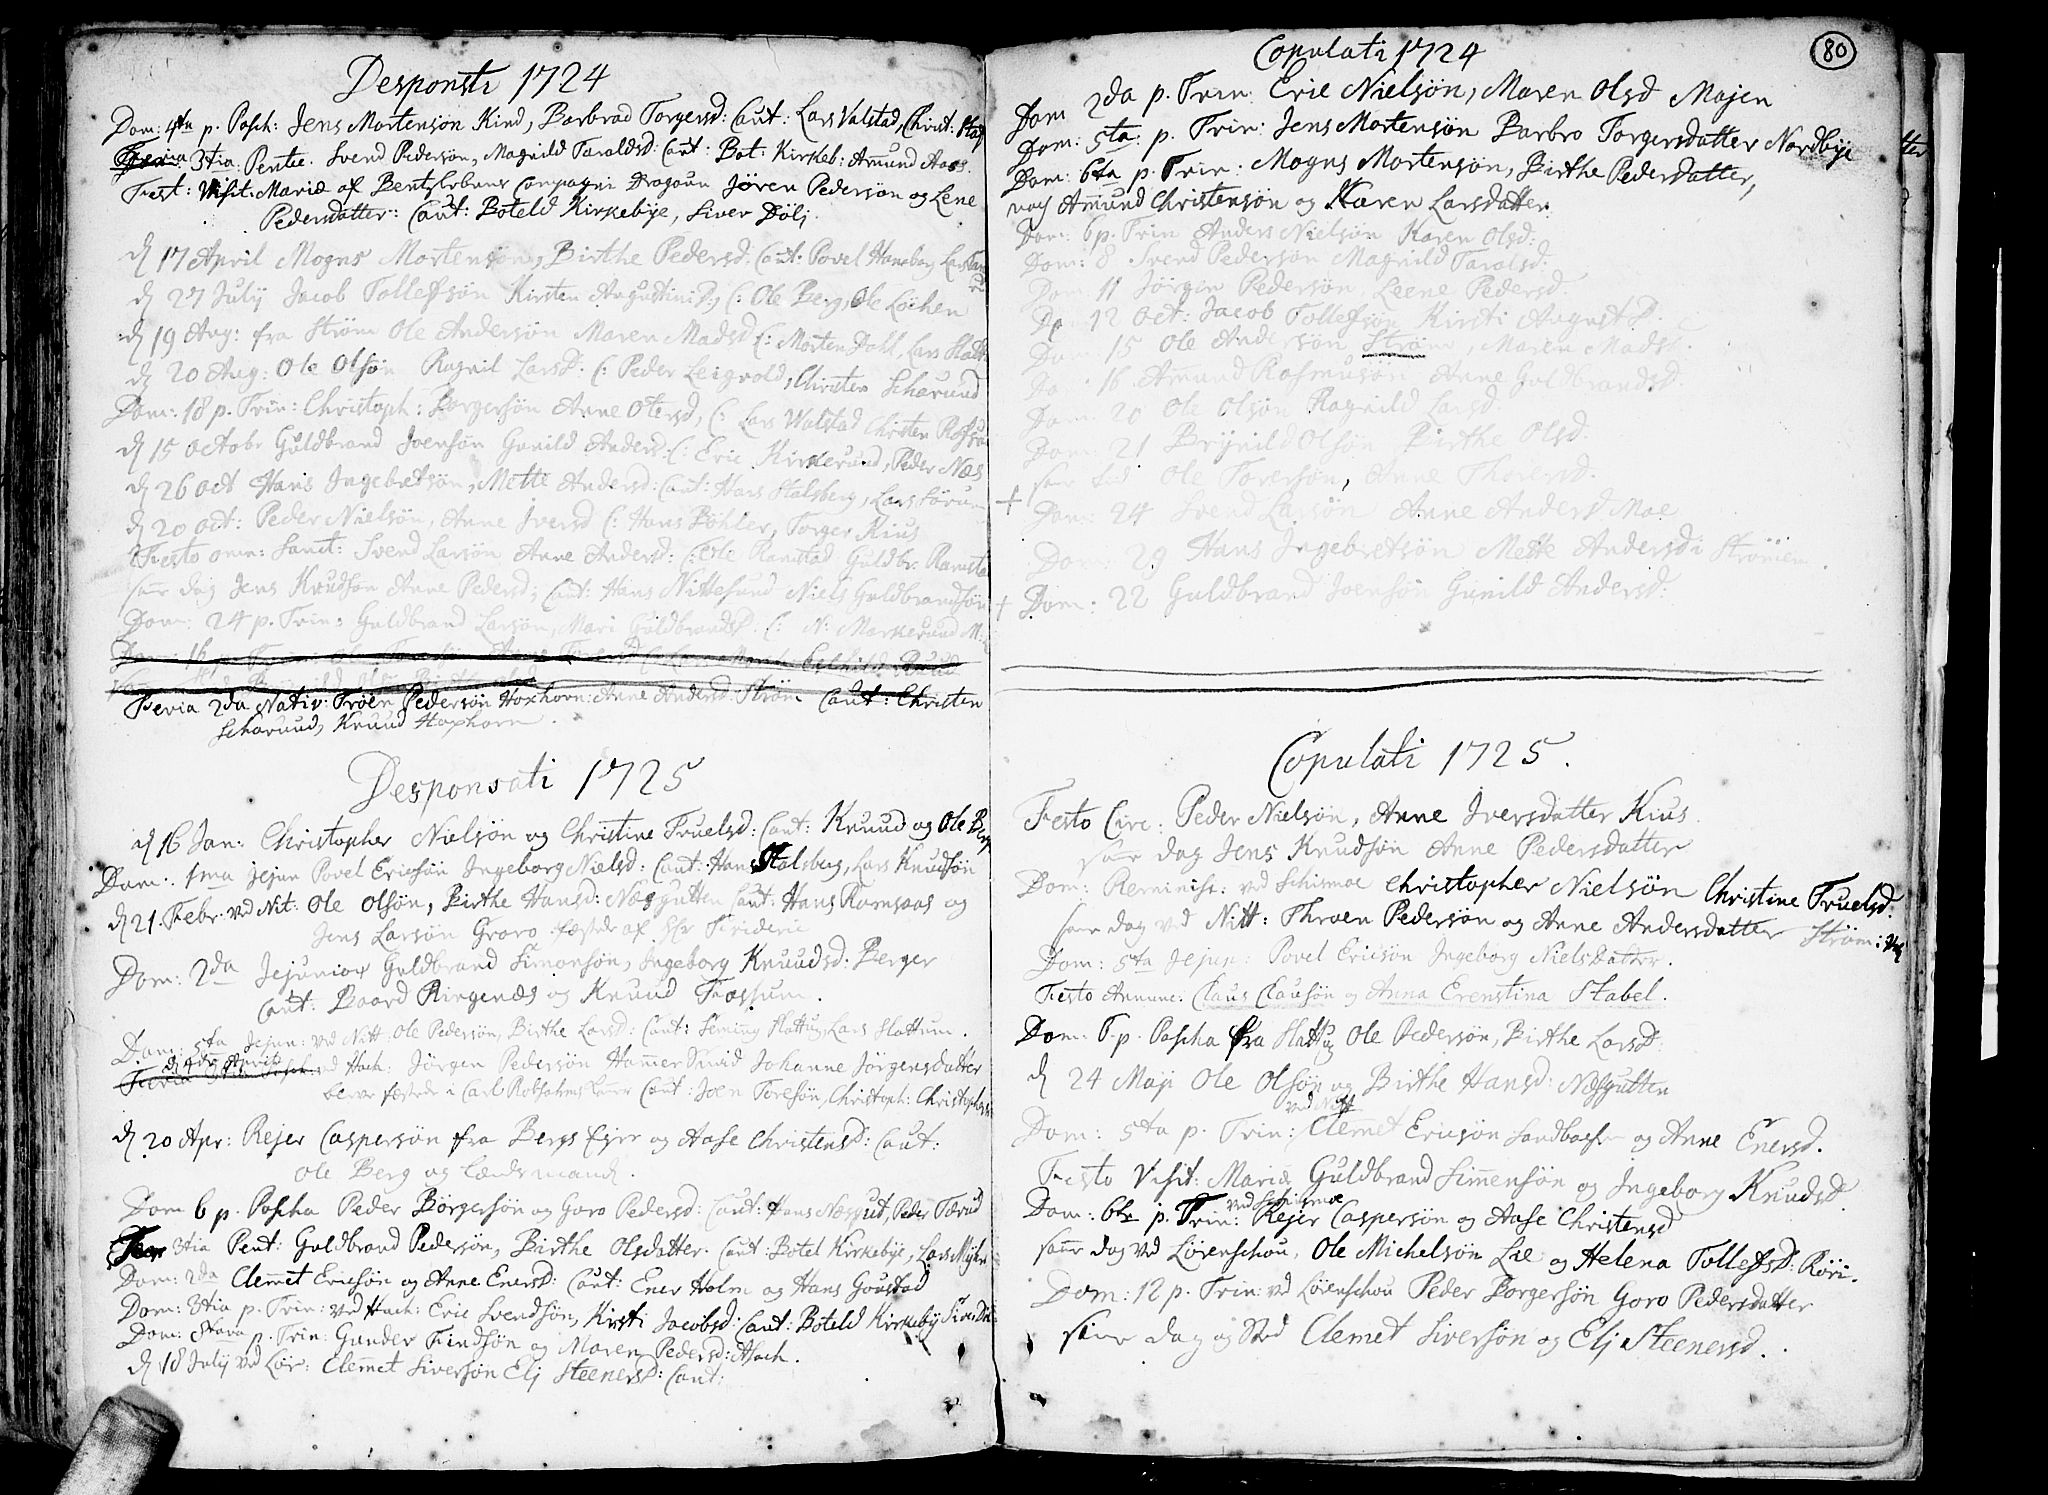 Desponsti 1724
Dom: 4ta p. Pasch: Jens Mortensøn Kind, Barbrad Torgersd: Caut: Lars Valstad, Christ:
Feria 3tia Pente. Svend Pedersøn, Magnild Taraldsd: Caut: Bot: Kirkeb: Amund Aass.
Fest: Visit: Mariæ af Compagni Dragoun Jøren Pedersøn og Lene
Pedersdatter: Caut: Boteld Kirkebye, Siver Dölj.
d 17 April Mogns Mortensøn, Birthe Pedersd. Caut: Povel Haneborg Lars
d 27 July Jacob Tollefsøn Kirsten Augustini D., C: Ole Berg, Ole Løchen
d 19 Aug: fra Strøm Ole Andersøn Maren Madsd C: Morten Dahl, Lars
d 20 Aug: Ole Olsøn Ragnil Larsd. C: Peder Leigvold, Christen Scharuud
Dom: 18 p. Trin: Christoph: Borgersøn Anne Olersd, C: Lars Walstad Christen
d 15 Octobr Guldbrand Joensøn Gunild Anders. C: Eric Kirkeruud, Peder Næs
d 26 Oct Hans Ingebretsøn, Mette Andersd: Caut: Hans Stalsberg, Lars Sørum
d 20 Oct: Peder Nielsøn, Anne Iversd C: Hans Böhler, Torger Kius
Festo omn: Sanct: Svend Larsøn Anne Andersd: C: Ole Ramstad Guldbr. Ramstad
samme dag Jens Knudsøn Anne Pedersd, Caut: Hans Nittesund Niels Guldbrandsøn
Dom: 24 p. Trin: Guldbrand Larsøn, Mari Guldbrandsd. C: N: Markerund M:
Dom: 16
Feria 2da Nativ: Troen Pedersøn Hoxhorn: Anne Andersd Strøm Caut: Christen
Scharuud, Knuud Hoxhorn.
Desponsati 1725
d 16 Jan: Christopher Nielsøn og Christine Truelsd: Caut: Knuud og Ole Berg
Dom: 1ma Jejun Povel Ericsøn Ingeborg Nielsd: Caut: Hans Stalsberg, Lars Knudsøn
d 21. Febr. ved Nit: Ole Olsøn, Birthe Hansd: Næsgutten Caut: Hans Ramsaas og
Jens Larsøn Groro fæstede af Hr Frideric
Dom: 2da Jejunior Guldbrand Simonsøn, Ingeborg Knuudsd: Berger
Caut: Baard Ringenæs og Knuud Fossum.
Dom: 5ta Jejun: ved Nitt: Ole Pedersøn, Birthe Larsd: Caut: Fleming Slattug, Lars Slattum.
d 4de April
Feria ved Hach: Jørgen Pedersøn Hammer Smid Johanne Jørgensdatter
bleve fæstede i Carl Caut: Joen Toresøn, Christoph: Christophersøn
d 20 Apr: Rejer Caspersøn fra Bergs Ejer og Aase Christensd: Caut:
Ole Berg og Lændsmand.
Dom 6 p. Pascha Peder Börgersøn og Goro Pedersd: Caut: Hans Næsgut, Peder Færud
Fer 3tia Pent: Guldbrand Pedersøn, Birthe Olsdatter. Caut: Botel Kirkebye, Lars Myhr
Dom: 2da Clemet Ericsøn og Anne Enersd: Caut: Ener Holm og Hans Goustad
Dom: 3tia p. Trin: ved Hach: Eric Svendsøn, Kirsti Jacobsd: Caut: Boteld Kirkeby Siver Döl
Dom: p. Trin: Gunder Findsøn og Maren Pedersd: Hach.
d 18 July ved Lør: Clemet Siversøn Elj Steenersd: Caut:
80
Copulati 1724
Dom 2da p. Trin: Eric Nielsøn, Maren Olsd Majen
Dom: 5ta: p. Trin: Jens Mortensøn Barbro Torgersdatter Nordbye
Dom: 6ta p. Trin: Mogns Mortensøn, Birthe Pedersdatter,
noch Amund Christensøn og Karen Larsdatter.
Dom: 6 p. Trin Anders Nielsøn Karen Olsd:
Dom: 8 Svend Pedersøn Magnild Taralsd:
Dom 11 Jörgen Pedersøn, Leene Pedersd.
Do 12 Oct: Jacob Tollefsøn Kirsti August D.
Dom: 15 Ole Andersøn Strøm, Maren Madsd.
Do 16 Amund Rasmusøn Anne Guldbrandsd.
Dom: 20 Ole Olsøn Ragnild Larsd.
Dom: 21 Brynild Olsøn Birthe Olsd.
samme tid Ole Toresøn, Anne Thoresd.
+ Dom: 24 Svend Larsøn Anne Andersd Moe
Dom: 29 Hans Ingebretsøn Mette Andersd i Strømen.
+ Dom: 22 Guldbrand Joensøn Gunild Andersd:
Copulati 1725.
Festo Circ: Peder Nielsøn, Anne Iversdatter Kius.
samme dag Jens Knudsøn Anne Pedersdatter
Dom: Reminisc: ved Schismoe Christopher Nielsøn Christine Truelsd.
samme dag ved Nitt: Throen Pedersøn og Anne Andersdatter Strøm:
Dom: 5ta Jejun: Povel Ericsøn Ingeborg Nielsdatter.
Festo Annunc: Claus Clausøn og Anna Erenstina Stabel.
Dom: 6. p. Pascha fra Slattug Ole Pedersøn, Birthe Larsd:
d 24 Maji Ole Olsøn og Birthe Hansd: Næsgutten
ved Nitt
Dom: 5ta p. Trin: Clemet Ericsøn Sandbach og Anne Enersd.
Festo Visit: Mariæ Guldbrand Simensøn og Ingeborg Knudsd.
ved Schismoe
Dom: 6te p. Trin: Rejer Caspersøn og Aase Christensd
samme dag ved Lørenschou, Ole Michelsøn Lie og Helena Tollefsd: Röri.
Dom: 12 p. Trin: ved Lörenschou Peder Borgersøn Goro Pedersdatter
samme dag og Sted Clemet Siversøn og Elj Steenersd.